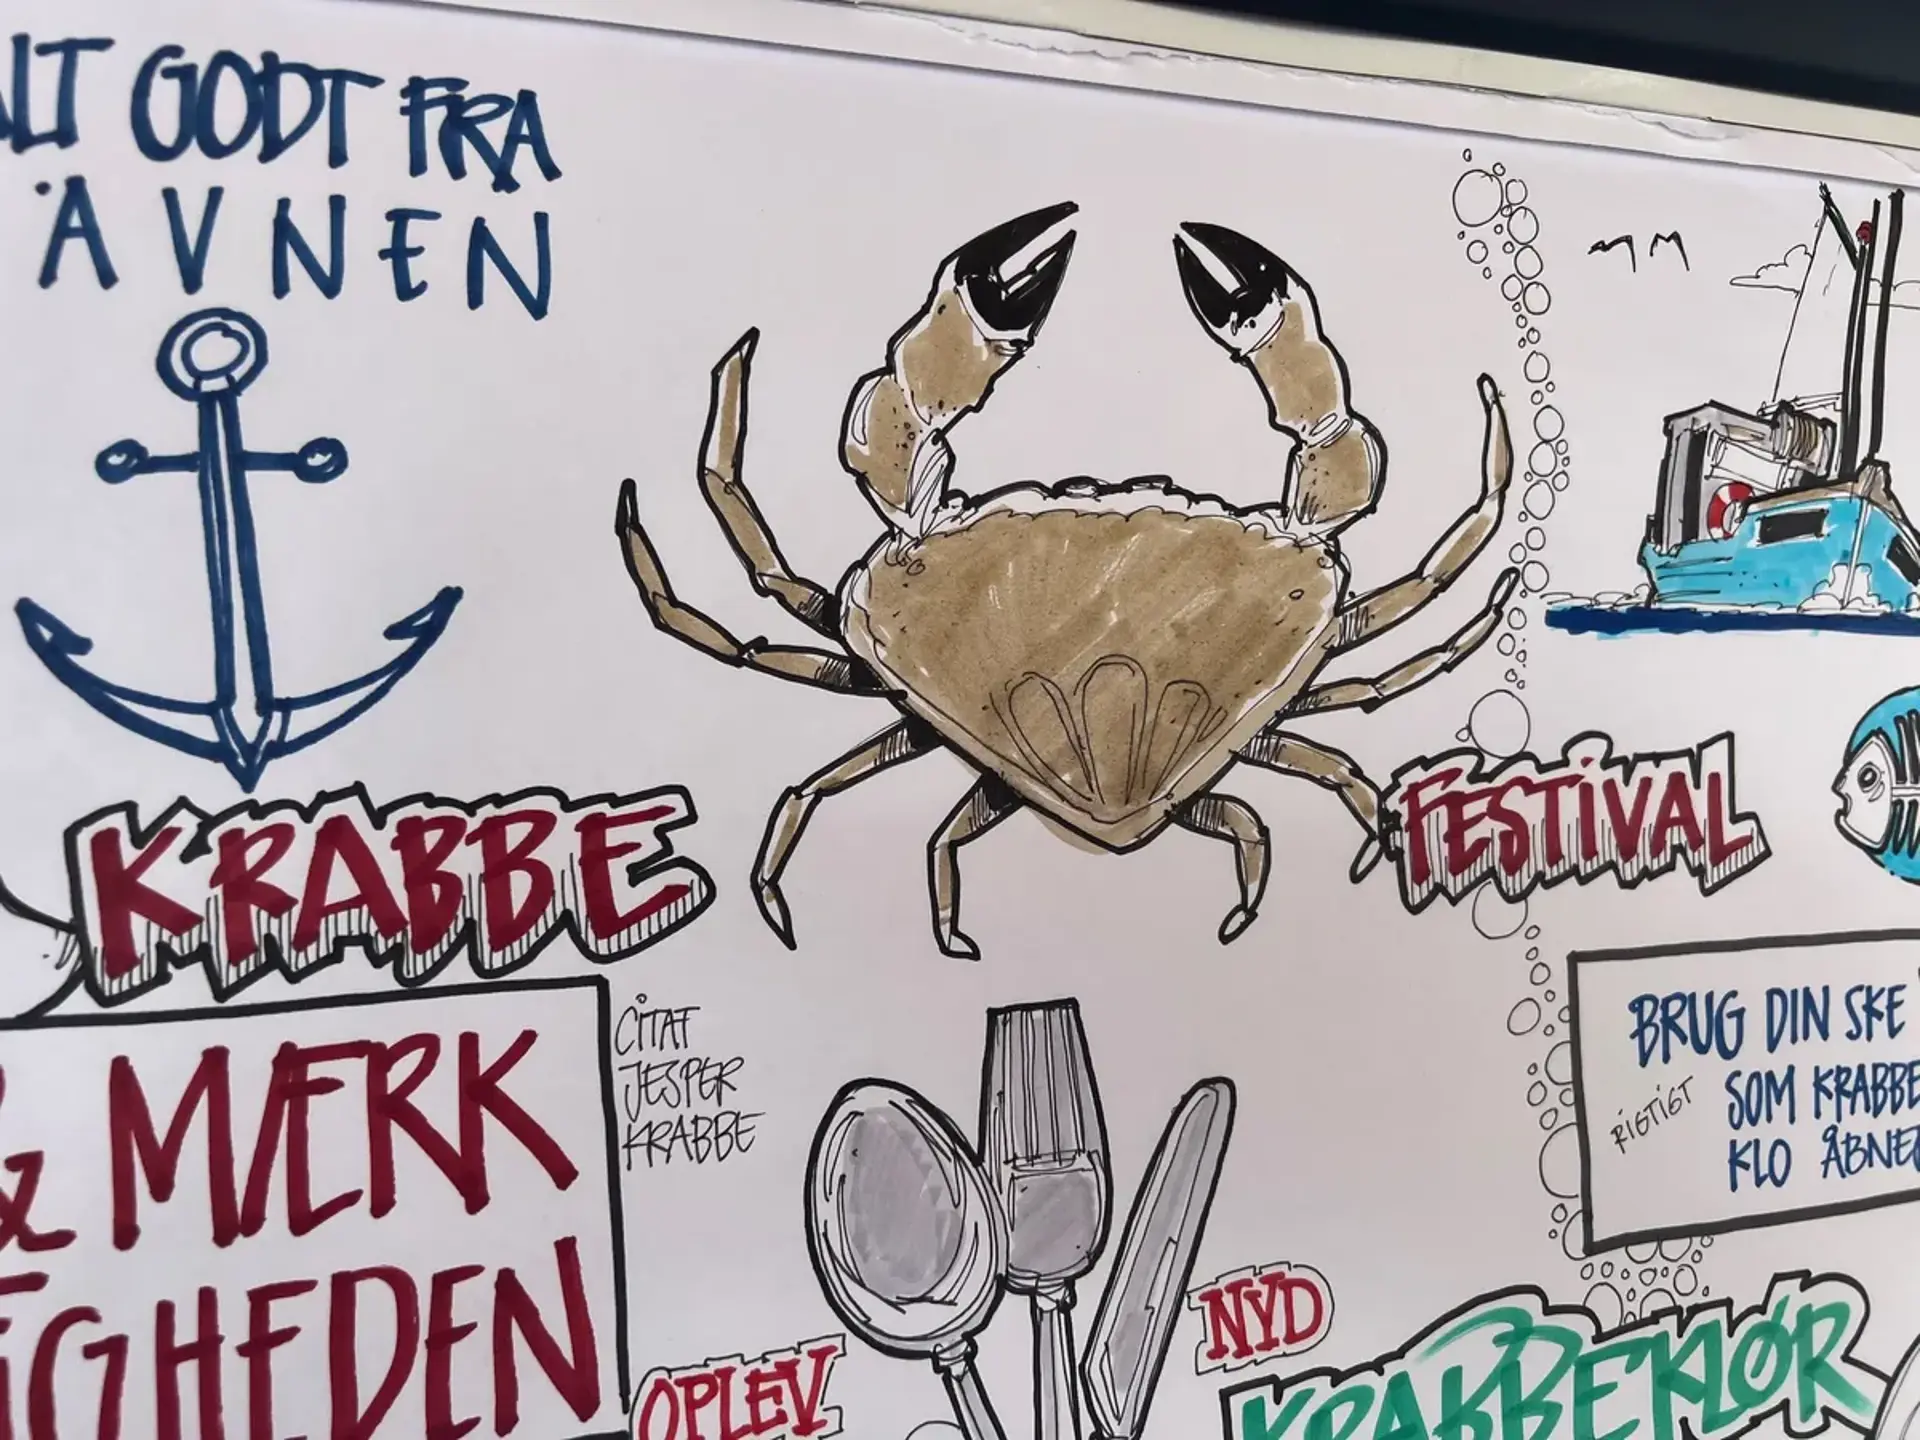 GODT FRA
ÄVNEN
KRABBE
FESTIVAL
& MÆRK
GHEDEN
CITAT
JESPER
KRABBE
BRUG DIN SKE
RIGTIGT SOM KRABBE
KLO ÅBNE
OPLEV
NYD
KRABBEKLØR